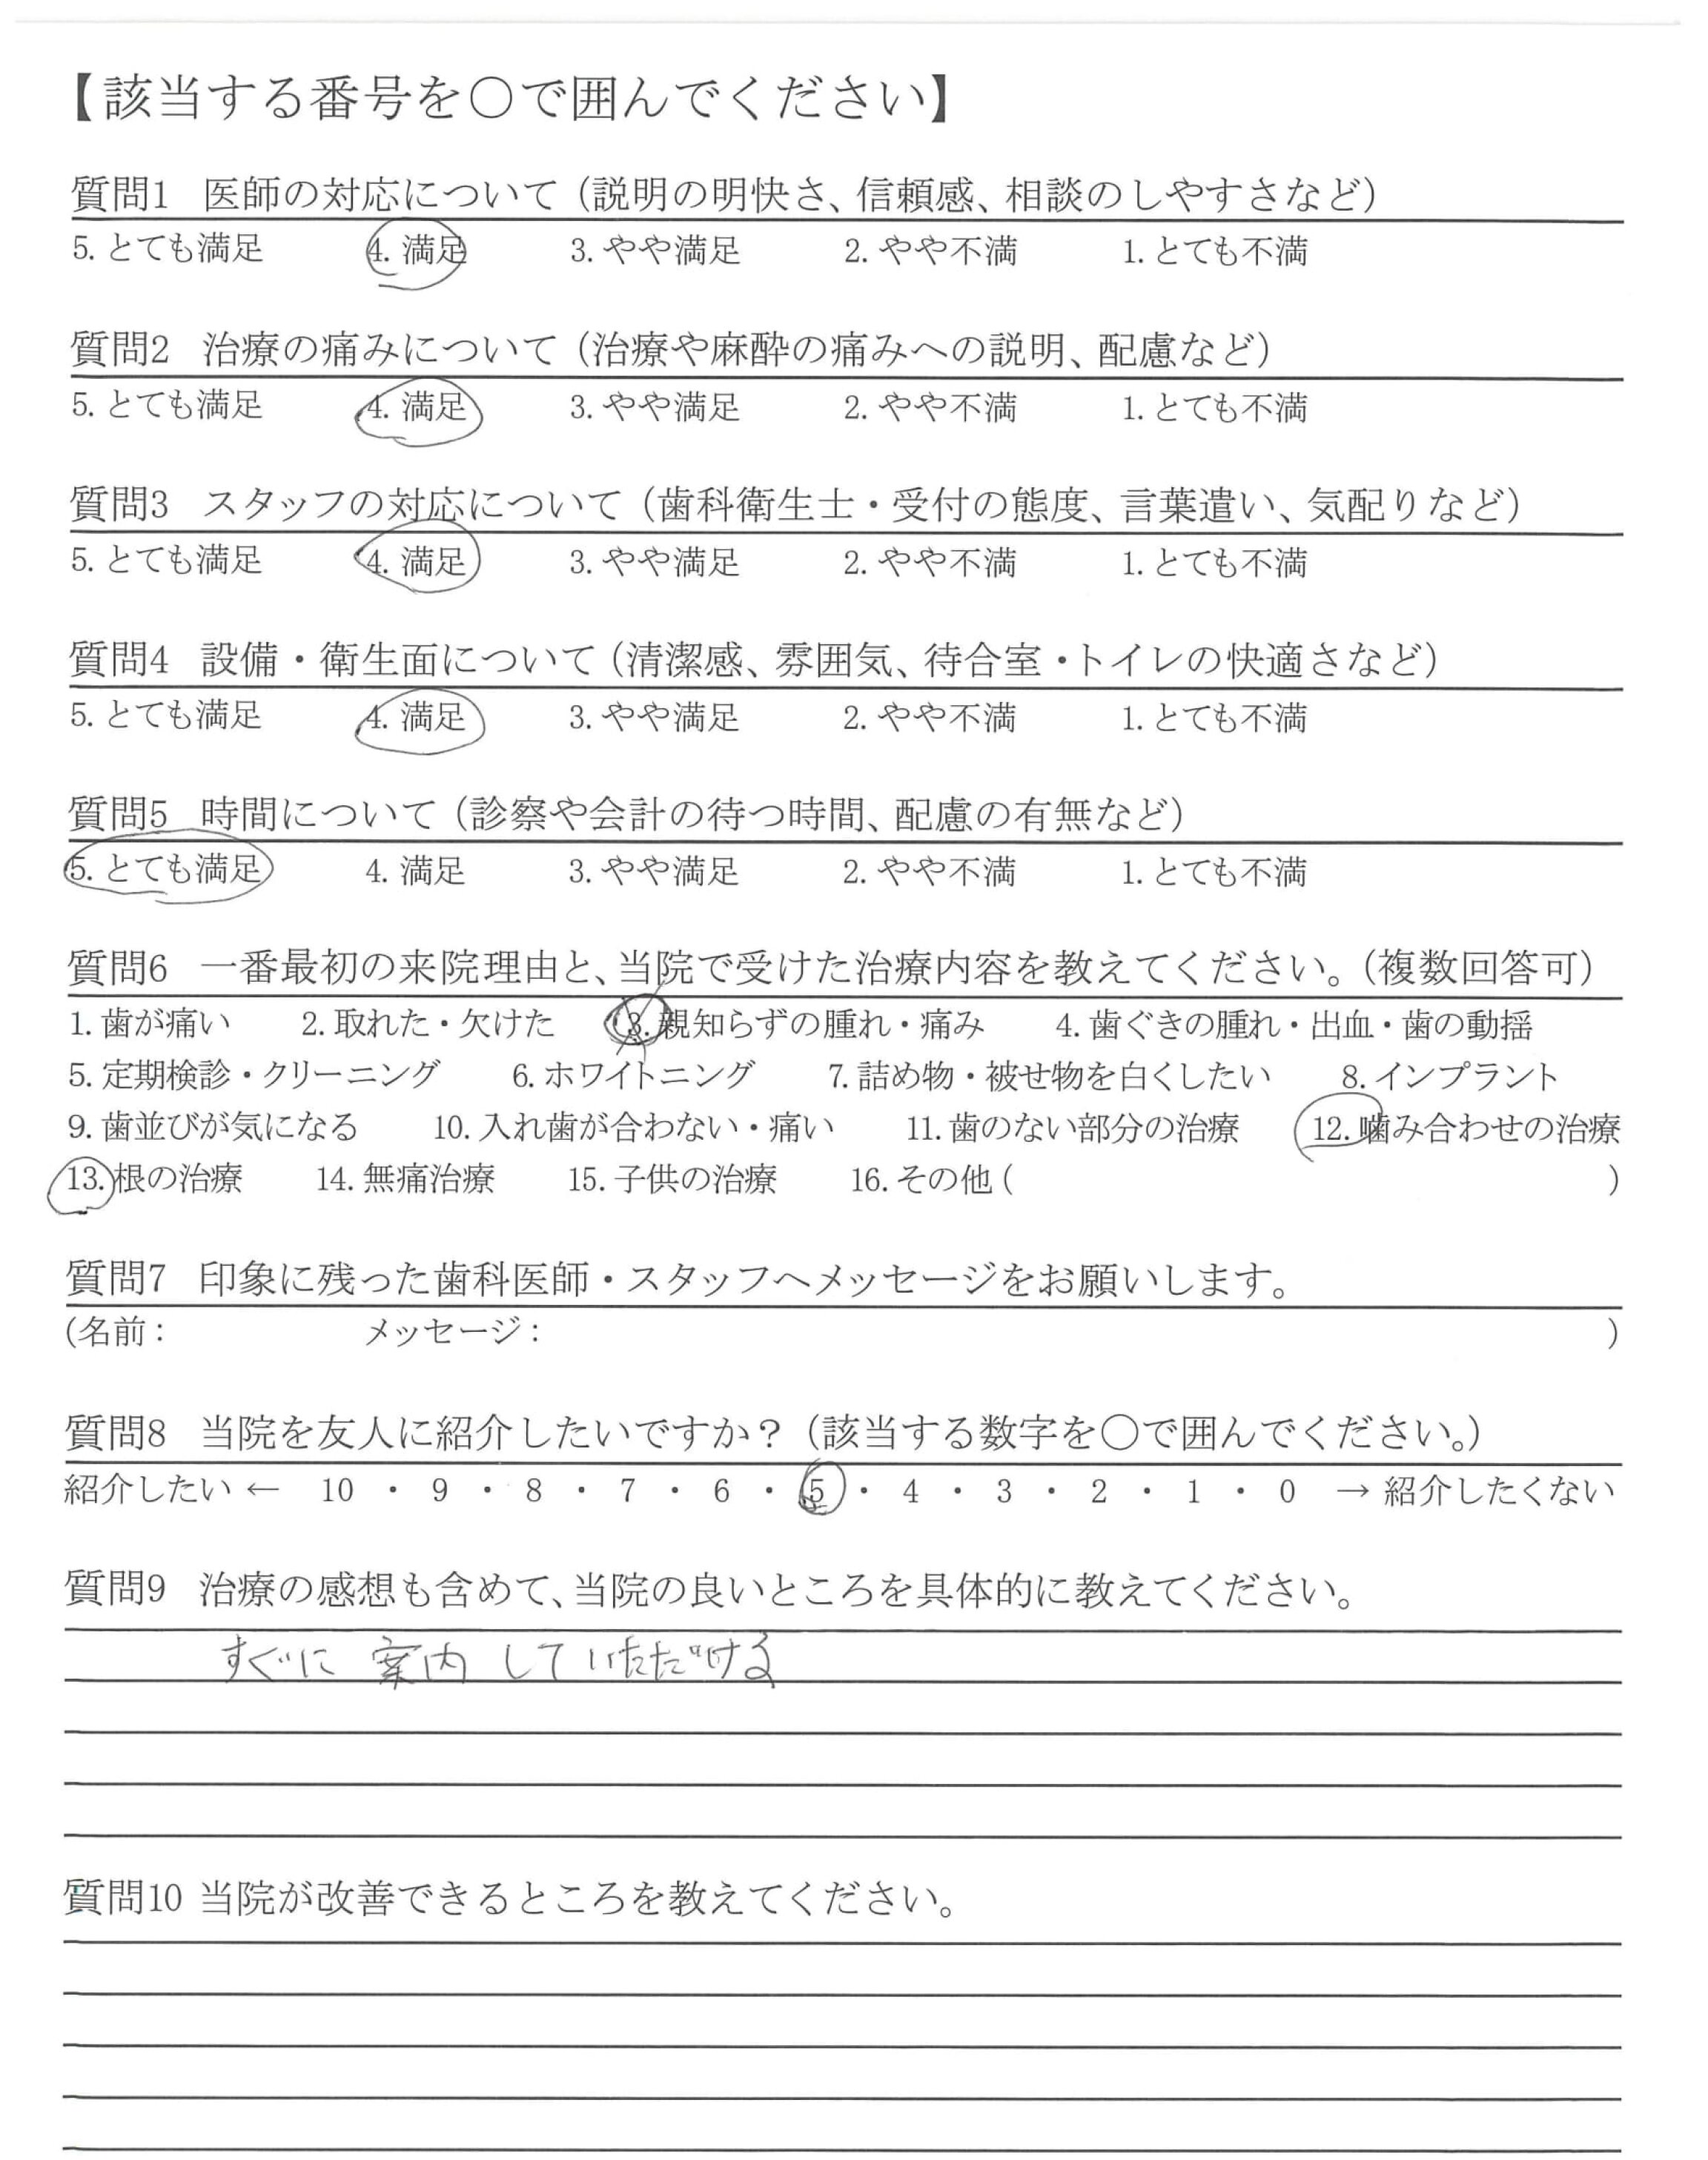 【該当する番号を○で囲んでください】
質問1 医師の対応について（説明の明快さ、信頼感、相談のしやすさなど）
5. とても満足 4. 満足 3. やや満足 2. やや不満 1. とても不満
質問2 治療の痛みについて（治療や麻酔の痛みへの説明、配慮など）
5. とても満足 4. 満足 3. やや満足 2. やや不満 1. とても不満
質問3 スタッフの対応について（歯科衛生士・受付の態度、言葉遣い、気配りなど）
5. とても満足 4. 満足 3. やや満足 2. やや不満 1. とても不満
質問4 設備・衛生面について（清潔感、雰囲気、待合室・トイレの快適さなど）
5. とても満足 4. 満足 3. やや満足 2. やや不満 1. とても不満
質問5 時間について（診察や会計の待つ時間、配慮の有無など）
5. とても満足 4. 満足 3. やや満足 2. やや不満 1. とても不満
質問6 一番最初の来院理由と、当院で受けた治療内容を教えてください。（複数回答可）
1. 歯が痛い 2. 取れた・欠けた 3. 親知らずの腫れ・痛み 4. 歯ぐきの腫れ・出血・歯の動揺
5. 定期検診・クリーニング 6. ホワイトニング 7. 詰め物・被せ物を白くしたい 8. インプラント
9. 歯並びが気になる 10. 入れ歯が合わない・痛い 11. 歯のない部分の治療 12. 噛み合わせの治療
13. 根の治療 14. 無痛治療 15. 子供の治療 16. その他 ( )
質問7 印象に残った歯科医師・スタッフへメッセージをお願いします。
(名前： メッセージ： )
質問8 当院を友人に紹介したいですか？（該当する数字を○で囲んでください。）
紹介したい ← 10 ・ 9 ・ 8 ・ 7 ・ 6 ・ 5 ・ 4 ・ 3 ・ 2 ・ 1 ・ 0 → 紹介したくない
質問9 治療の感想も含めて、当院の良いところを具体的に教えてください。
すぐに 案内 していただける
質問10 当院が改善できるところを教えてください。